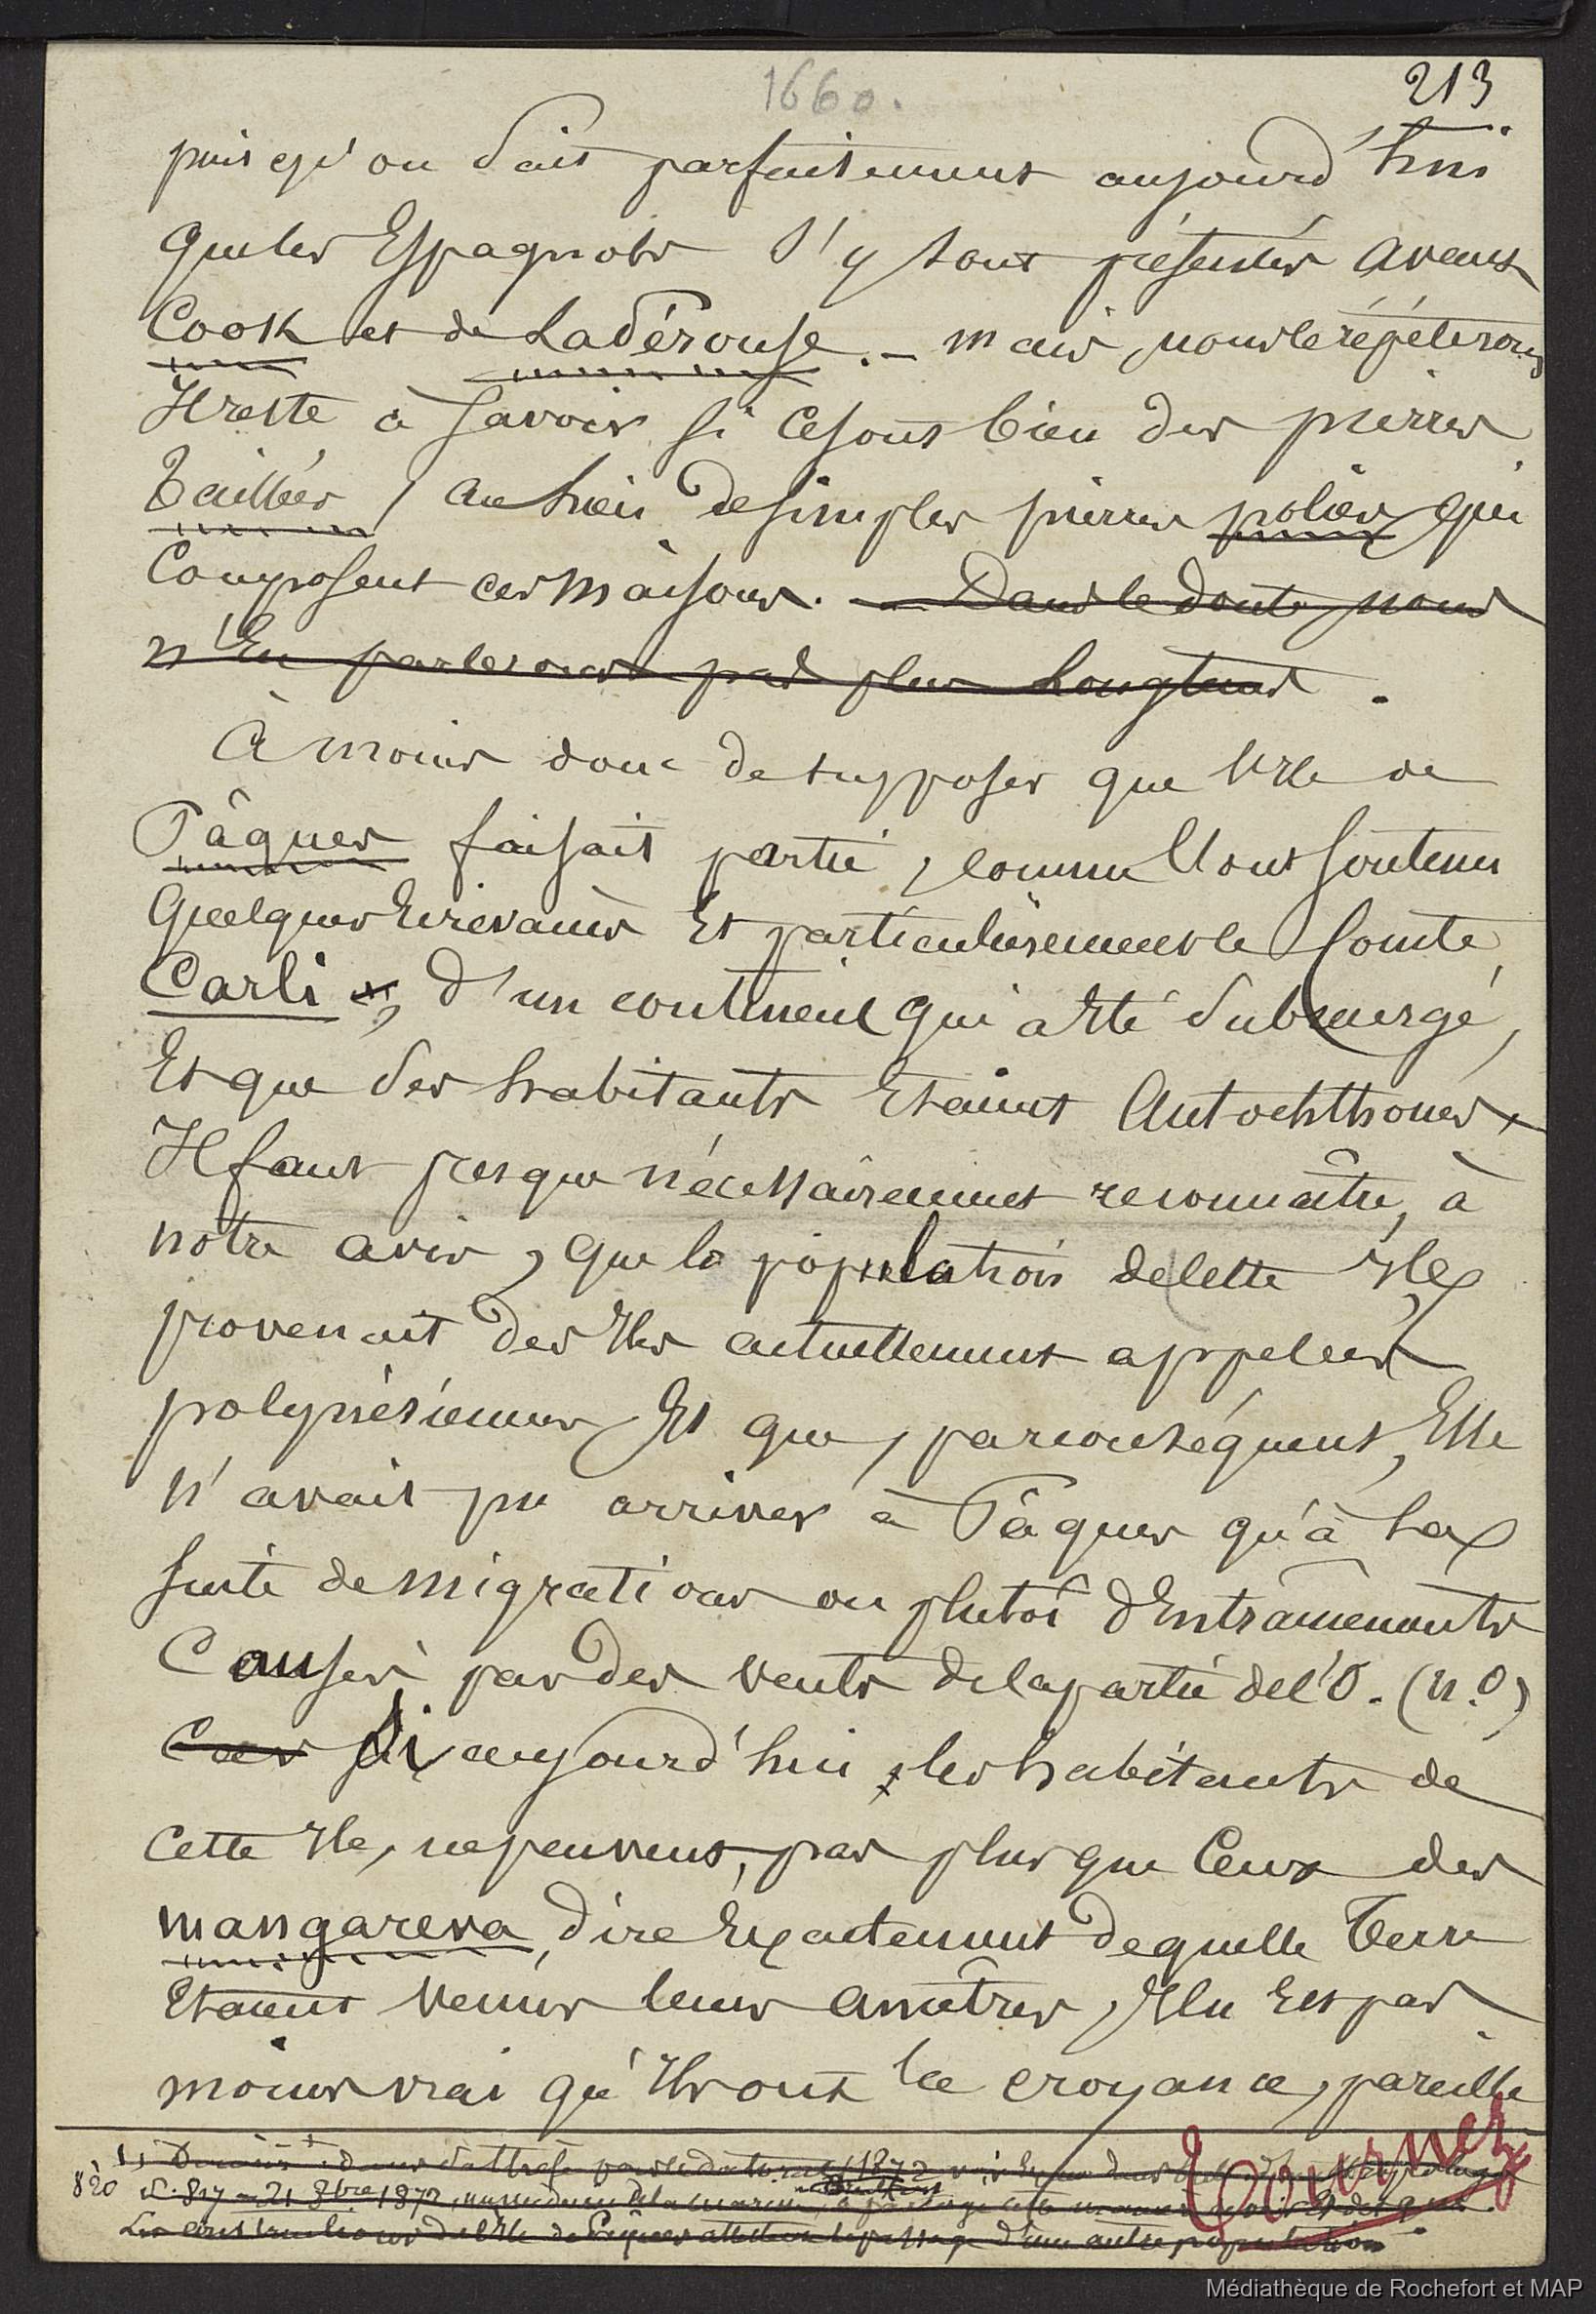 1660.
213
puisqu'on sait parfaitement aujourd'hui
que les Espagnols s'y sont présentés avant
Cook et de LaPérouse. - mais, nous le répéterons
Il reste à savoir si ce sont bien des pierres
taillées, au lieu de simples pierres polies qui
composent ces maisons. - Dans le doute, nous
n'en parlerons pas plus longtems.
À moins donc de supposer que l'île de
Pâques faisait partie, comme l'ont soutenu
quelques Ecrivains Et particulièrement le Comte
Carli, d'un continent qui a été submergé,
Et que ses habitants Etaient Autochthones,
Il faut presque nécessairement reconnaître, à
notre avis, que la population de cette île
provenait des îles actuellement appelées
polynésiennes Et que, par conséquent, Elle
n'avait pu arriver à Pâques qu'à la
suite de migrations ou plutôt d'Entraînements
Causés par des vents de la partie de l'O. (n.O)
Car Si aujourd'hui, les habitants de
cette île, ne peuvent, pas plus que Ceux des
mangareva, dire Exactement de quelle Terre
Etaient venus leurs ancêtres, Il n'en Est pas
moins vrai qu'ils ont la croyance, pareille
820 p. 817 - 21 8bre 1872
Les constructions de l'île de Pâques attestent le passage d'une autre population
Tournez
Médiathèque de Rochefort et MAP